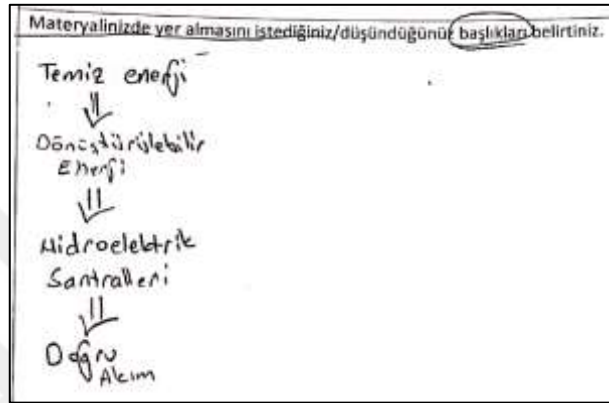 Materyalinizde yer almasını istediğiniz/düşündüğünüz başlıkları belirtiniz.
Temiz enerji
Dönüştürülebilir
Enerji
Hidroelektrik
Santralleri
Doğru
Akım